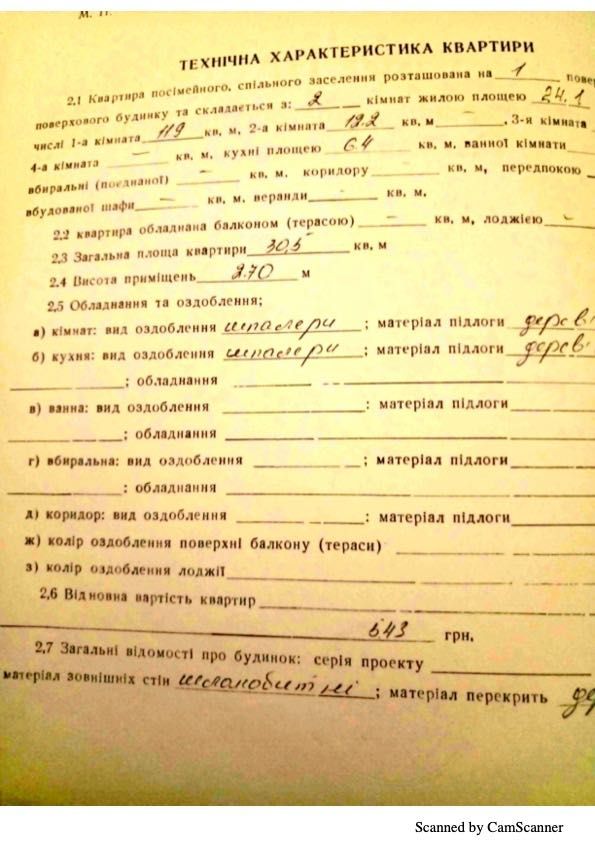 М. П.
ТЕХНІЧНА ХАРАКТЕРИСТИКА КВАРТИРИ
2.1 Квартира посімейного, спільного заселення розташована на 1 повер
поверхового будинку та складається з: 2 кімнат жилою площею 24.1
числі 1-а кімната 11.9 кв, м, 2-а кімната 12.2 кв, м — , 3-я кімната
4-а кімната — кв. м, кухні площею 6.4 кв, м. ванної кімнати
вбиральні (поєднаної) — кв, м. коридору — кв, м, передпокою
вбудованої шафи — кв, м. веранди — кв, м.
2.2 квартира обладнана балконом (терасою) — кв, м, лоджією —
2.3 Загальна площа квартири 30,5 кв, м
2.4 Висота приміщень 2.70 м
2,5 Обладнання та оздоблення;
а) кімнат: вид оздоблення шпалери ; матеріал підлоги дерев
б) кухня: вид оздоблення шпалери ; матеріал підлоги дерев
; обладнання
в) ванна: вид оздоблення : матеріал підлоги
; обладнання
г) вбиральна: вид оздоблення ; матеріал підлоги
: обладнання
д) коридор: вид оздоблення : матеріал підлоги
ж) колір оздоблення поверхні балкону (тераси)
з) колір оздоблення лоджії
2,6 Відновна вартість квартир
543 грн.
2,7 Загальні відомості про будинок: серія проекту
матеріал зовнішніх стін шлакобитні ; матеріал перекрить де
Scanned by CamScanner